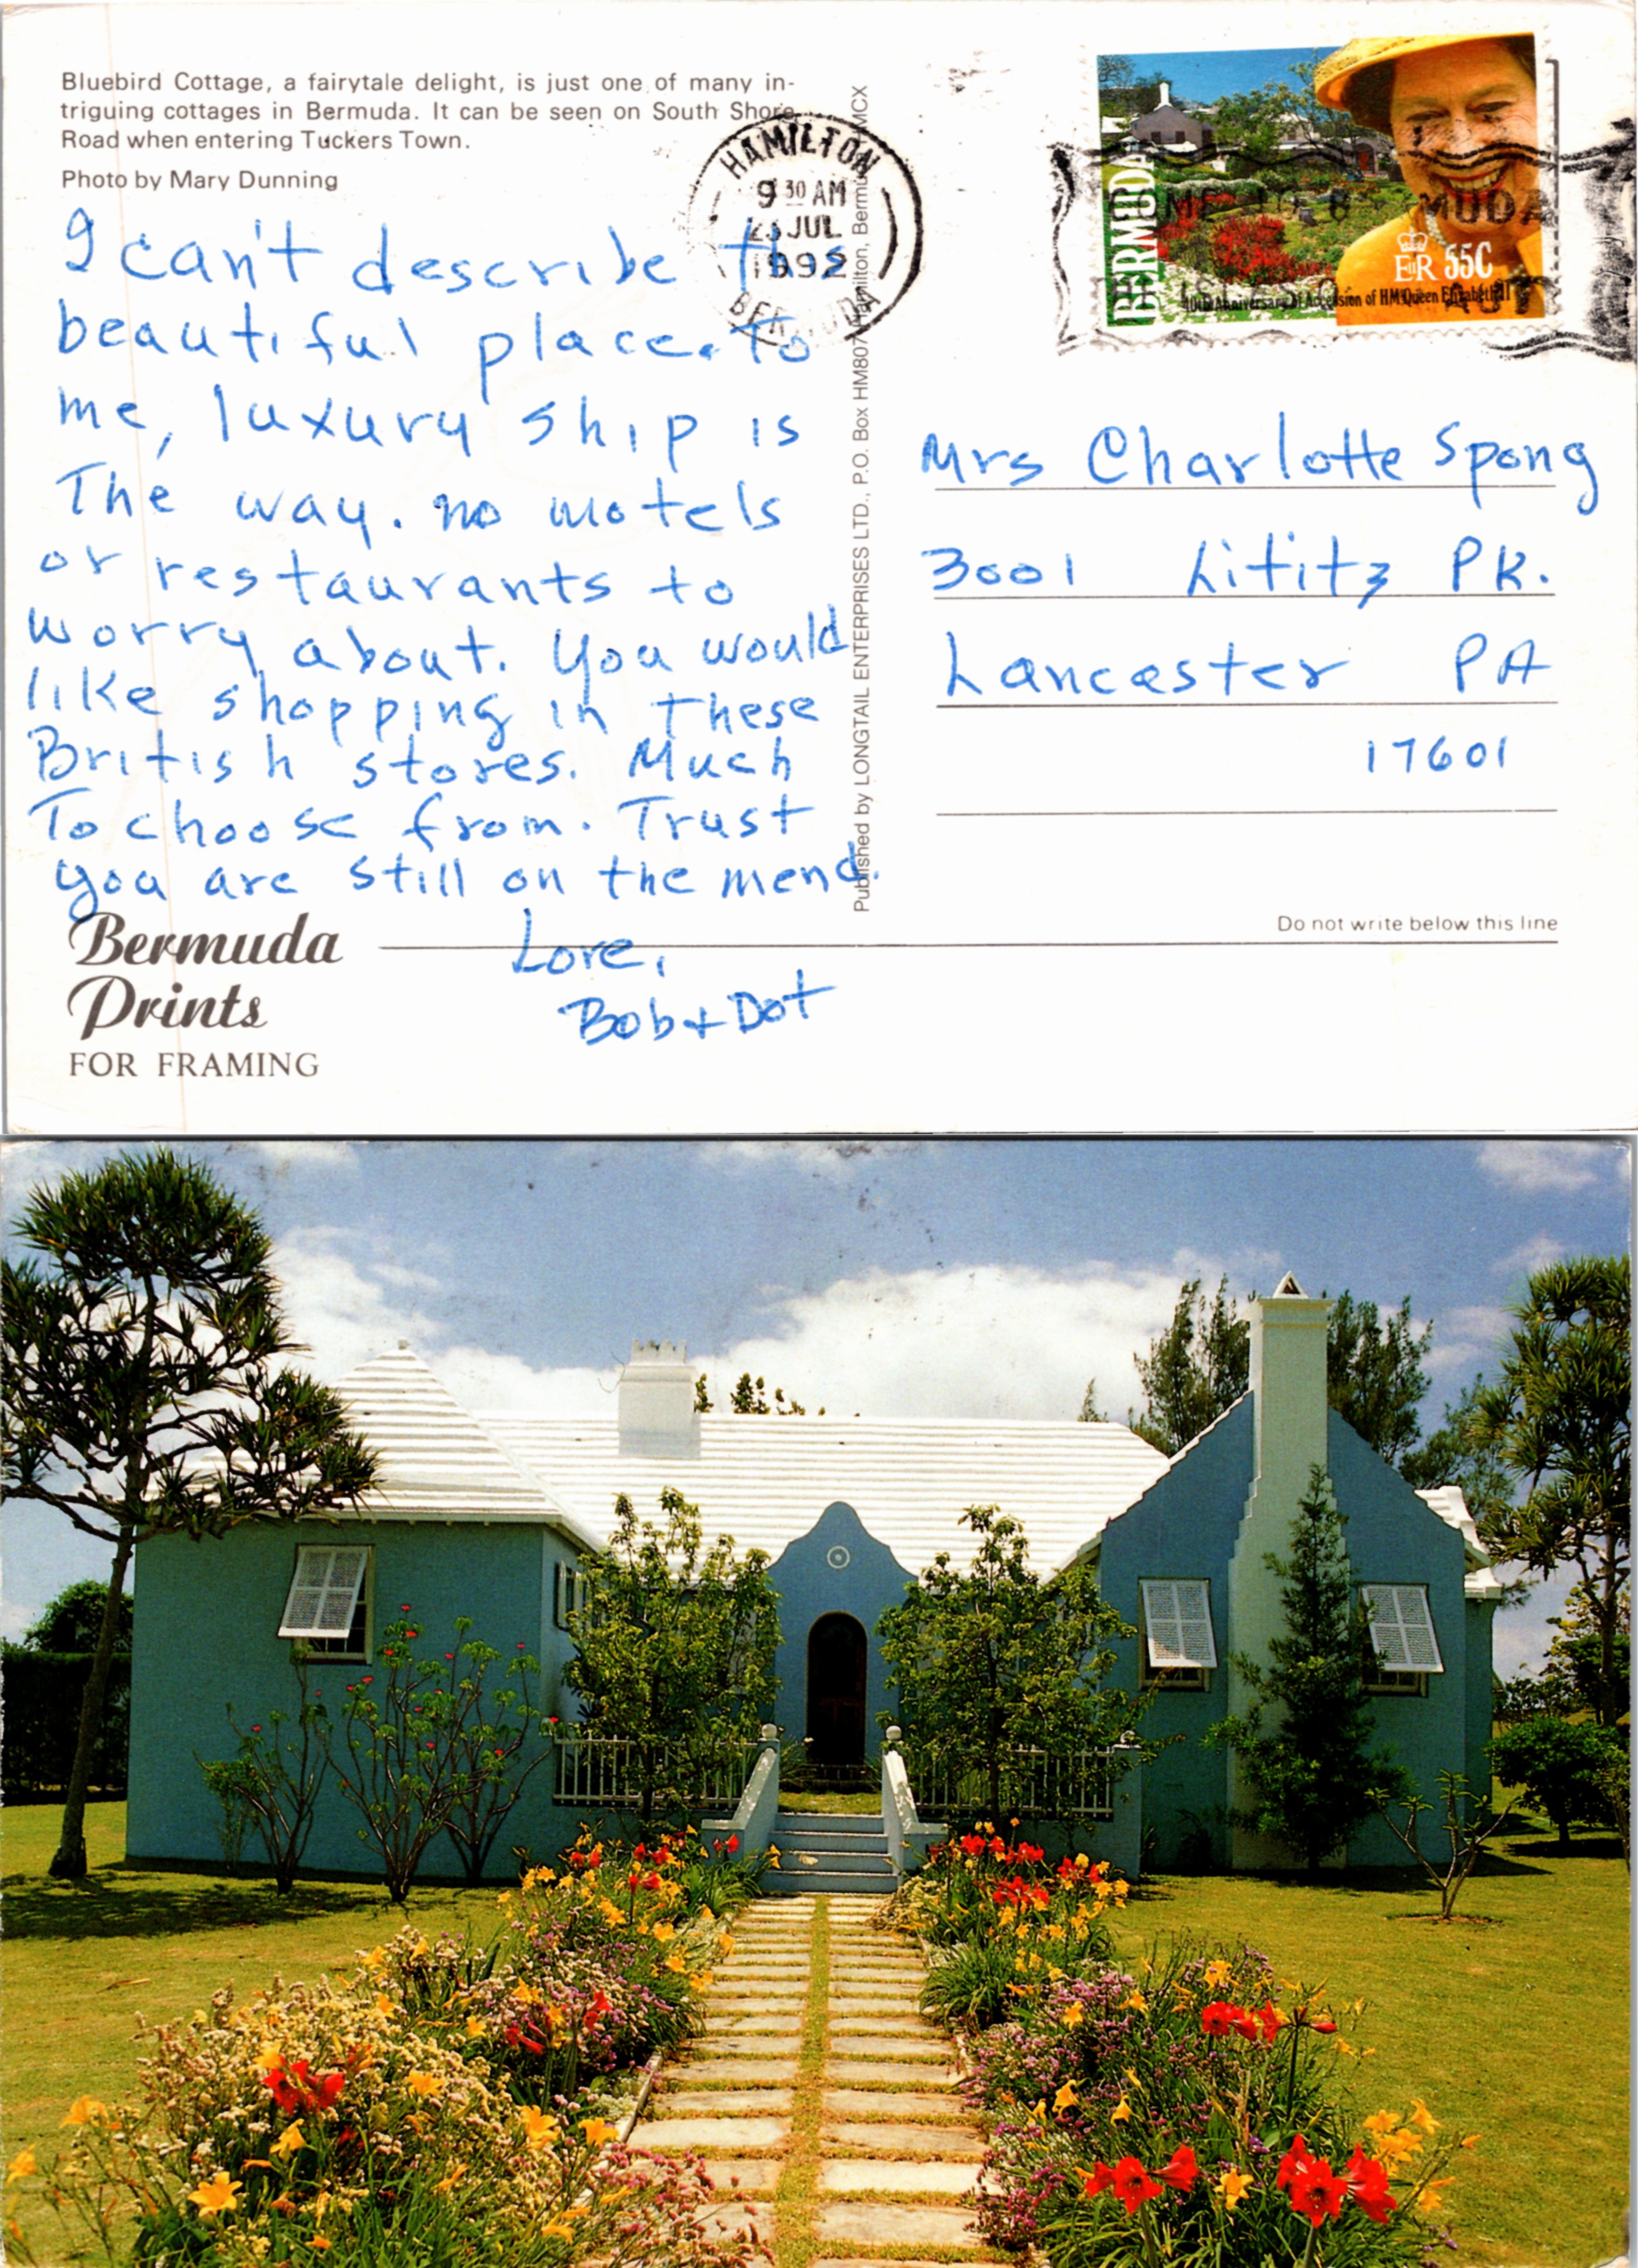 Bluebird Cottage, a fairytale delight, is just one of many in-
triguing cottages in Bermuda. It can be seen on South Shore
Road when entering Tuckers Town.
Photo by Mary Dunning
I can't describe this
beautiful place. To
me, luxury ship is
The way. no motels
or restaurants to
worry about. You would
like shopping in these
British stores. Much
To choose from. Trust
you are still on the mend.
Love,
Bob + Dot
Bermuda
Prints
FOR FRAMING
HAMILTON
9 30 AM
JUL
1992
BERMUDA
Published by LONGTAIL ENTERPRISES LTD., P.O. Box HM807 Hamilton, Bermuda HMCX
BERMUDA
EIIR 55C
40th Anniversary of Accession of HM Queen Elizabeth II
MUDA
Mrs Charlotte Spong
3001 Lititz PK.
Lancaster PA
17601
Do not write below this line